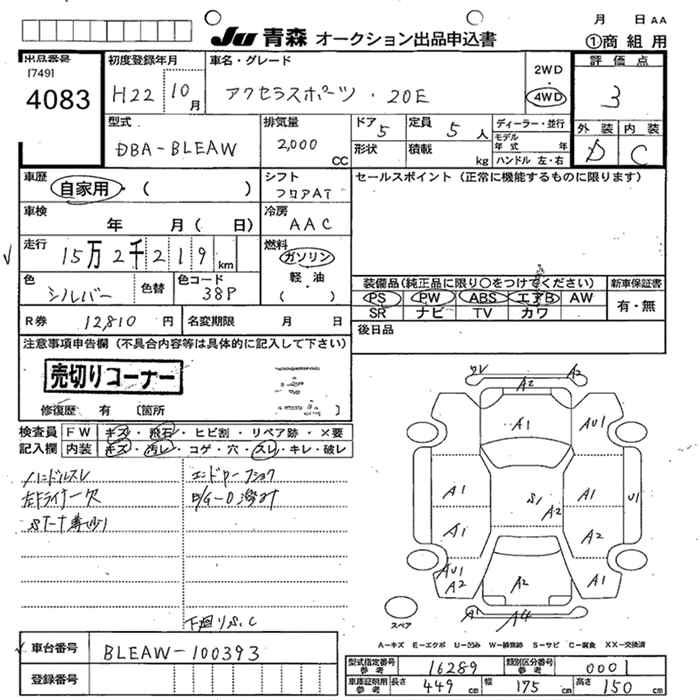 月 日 AA
Ju 青森 オークション出品申込書
①商組用
出品番号
[749]
4083
初度登録年月
H22 10月
車名・グレード
アクセラスポーツ・20E
2WD・4WD
評価点
3
型式
DBA-BLEAW
排気量
2,000 CC
ドア 5
定員 5人
形状
積載 kg
ディーラー・並行
モデル年式 年式
ハンドル 左・右
外装 内装
D C
車歴
自家用・( )
シフト
フロアAT
セールスポイント(正常に機能するものに限ります)
車検
年 月( 日)
冷房
AAC
走行
15万2千219km
燃料
ガソリン
軽・油
・( )
色
シルバー
色替
色コード
38P
装備品(純正品に限り○をつけてください)
新車保証書
PS PW ABS エアB AW
SR ナビ TV カワ
有・無
R券 12,810円
名変期限 月 日
後日品
注意事項申告欄(不具合内容等は具体的に記入して下さい)
売切りコーナー
修復歴 有 [箇所 ]
検査員 FW キズ・飛石・ヒビ割・リペア跡・×要
記入欄 内装 キズ・汚レ・コゲ・穴・スレ・キレ・破レ
ハンドルスレ
A2
A1
AU1
A1
S1
A2
A1
U1
A1
A2
AU1
A2
A2
A1
A1
A4
スペア
下廻りS.C
A-キズ E-エクボ U-凹み W-補修跡 S-サビ C-腐食 XX-交換済
車台番号
BLEAW-100393
登録番号
型式指定番号 参考 16289
類別区分番号 参考 0001
車庫証明用 参考 長さ 449cm 幅 175cm 高さ 150cm